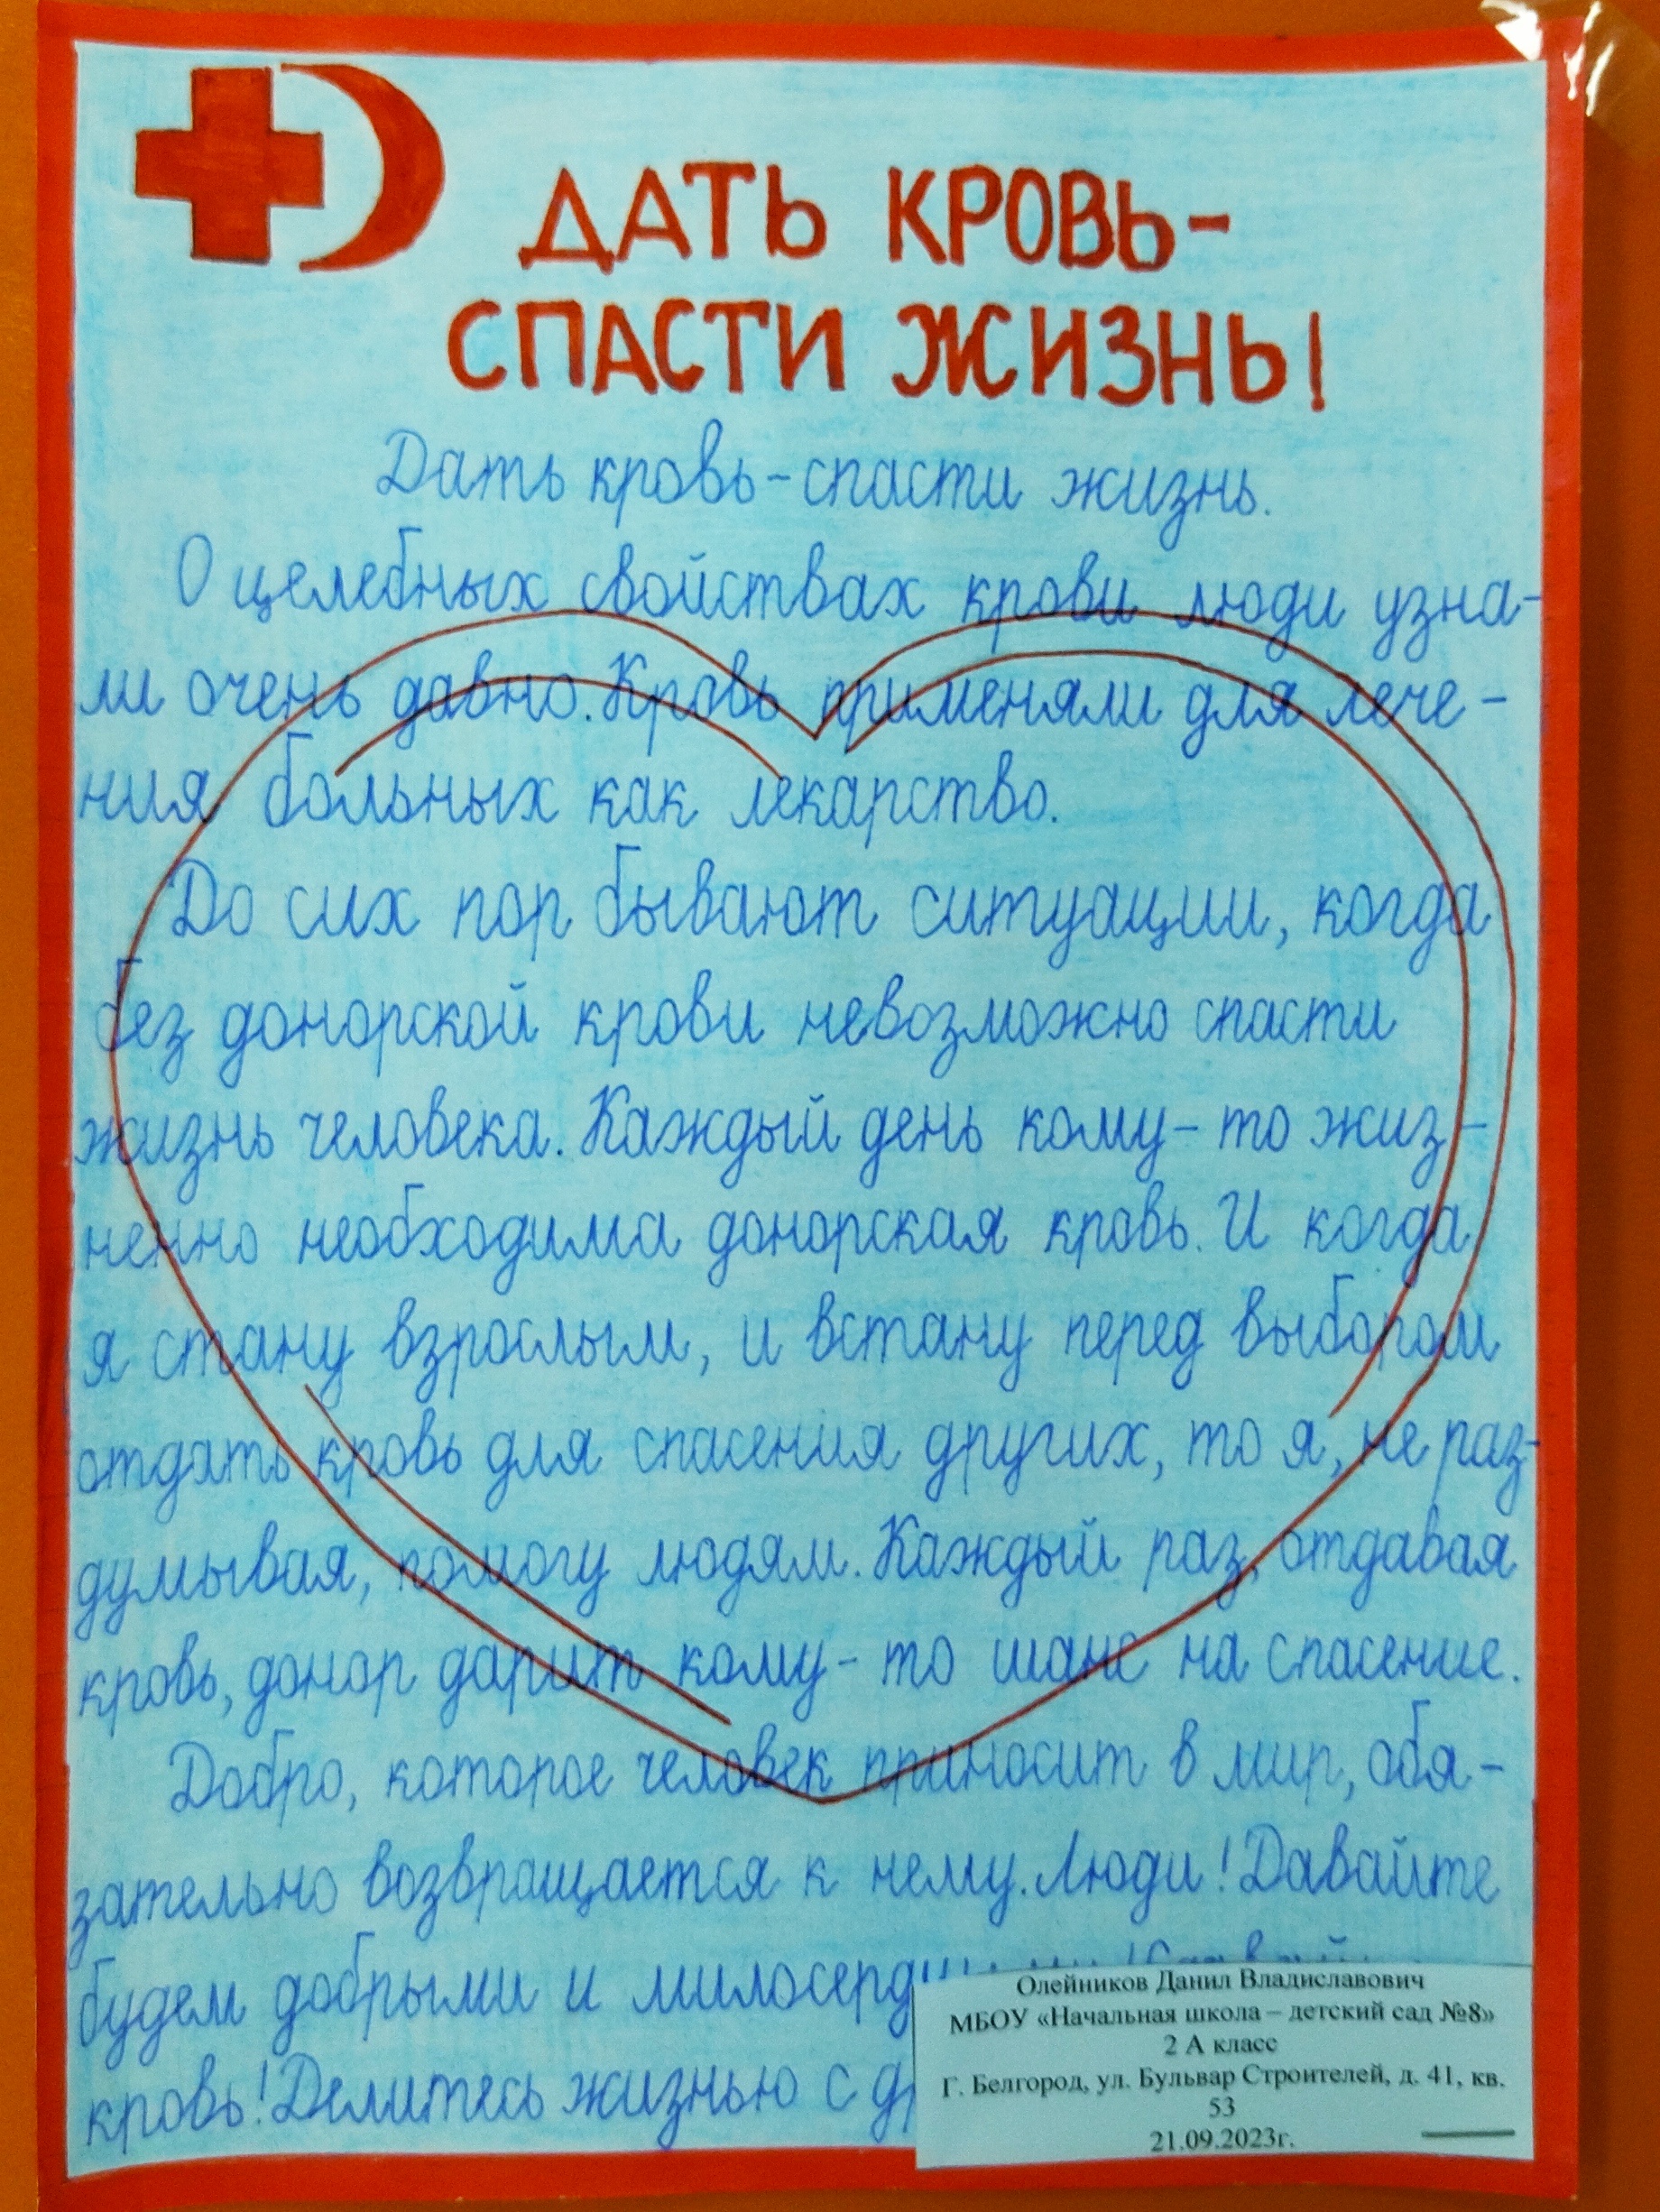 ДАТЬ КРОВЬ-
СПАСТИ ЖИЗНЬ!
Дать кровь-спасти жизнь.
О целебных свойствах крови люди узна-
ли очень давно. Кровь применяли для лече-
ния больных как лекарство.
До сих пор бывают ситуации, когда
без донорской крови невозможно спасти
жизнь человека. Каждый день кому-то жиз-
ненно необходима донорская кровь. И когда
я стану взрослым, и встану перед выбором
отдать кровь для спасения других, то я, не раз-
думывая, помогу людям. Каждый раз, отдавая
кровь, донор дарит кому-то шанс на спасение.
Добро, которое человек приносит в мир, обя-
зательно возвращается к нему. Люди! Давайте
будем добрыми и
кровь! Делитесь жизнью с
Олейников Данил Владиславович
МБОУ «Начальная школа – детский сад №8»
2 А класс
Г. Белгород, ул. Бульвар Строителей, д. 41, кв.
53
21.09.2023г.